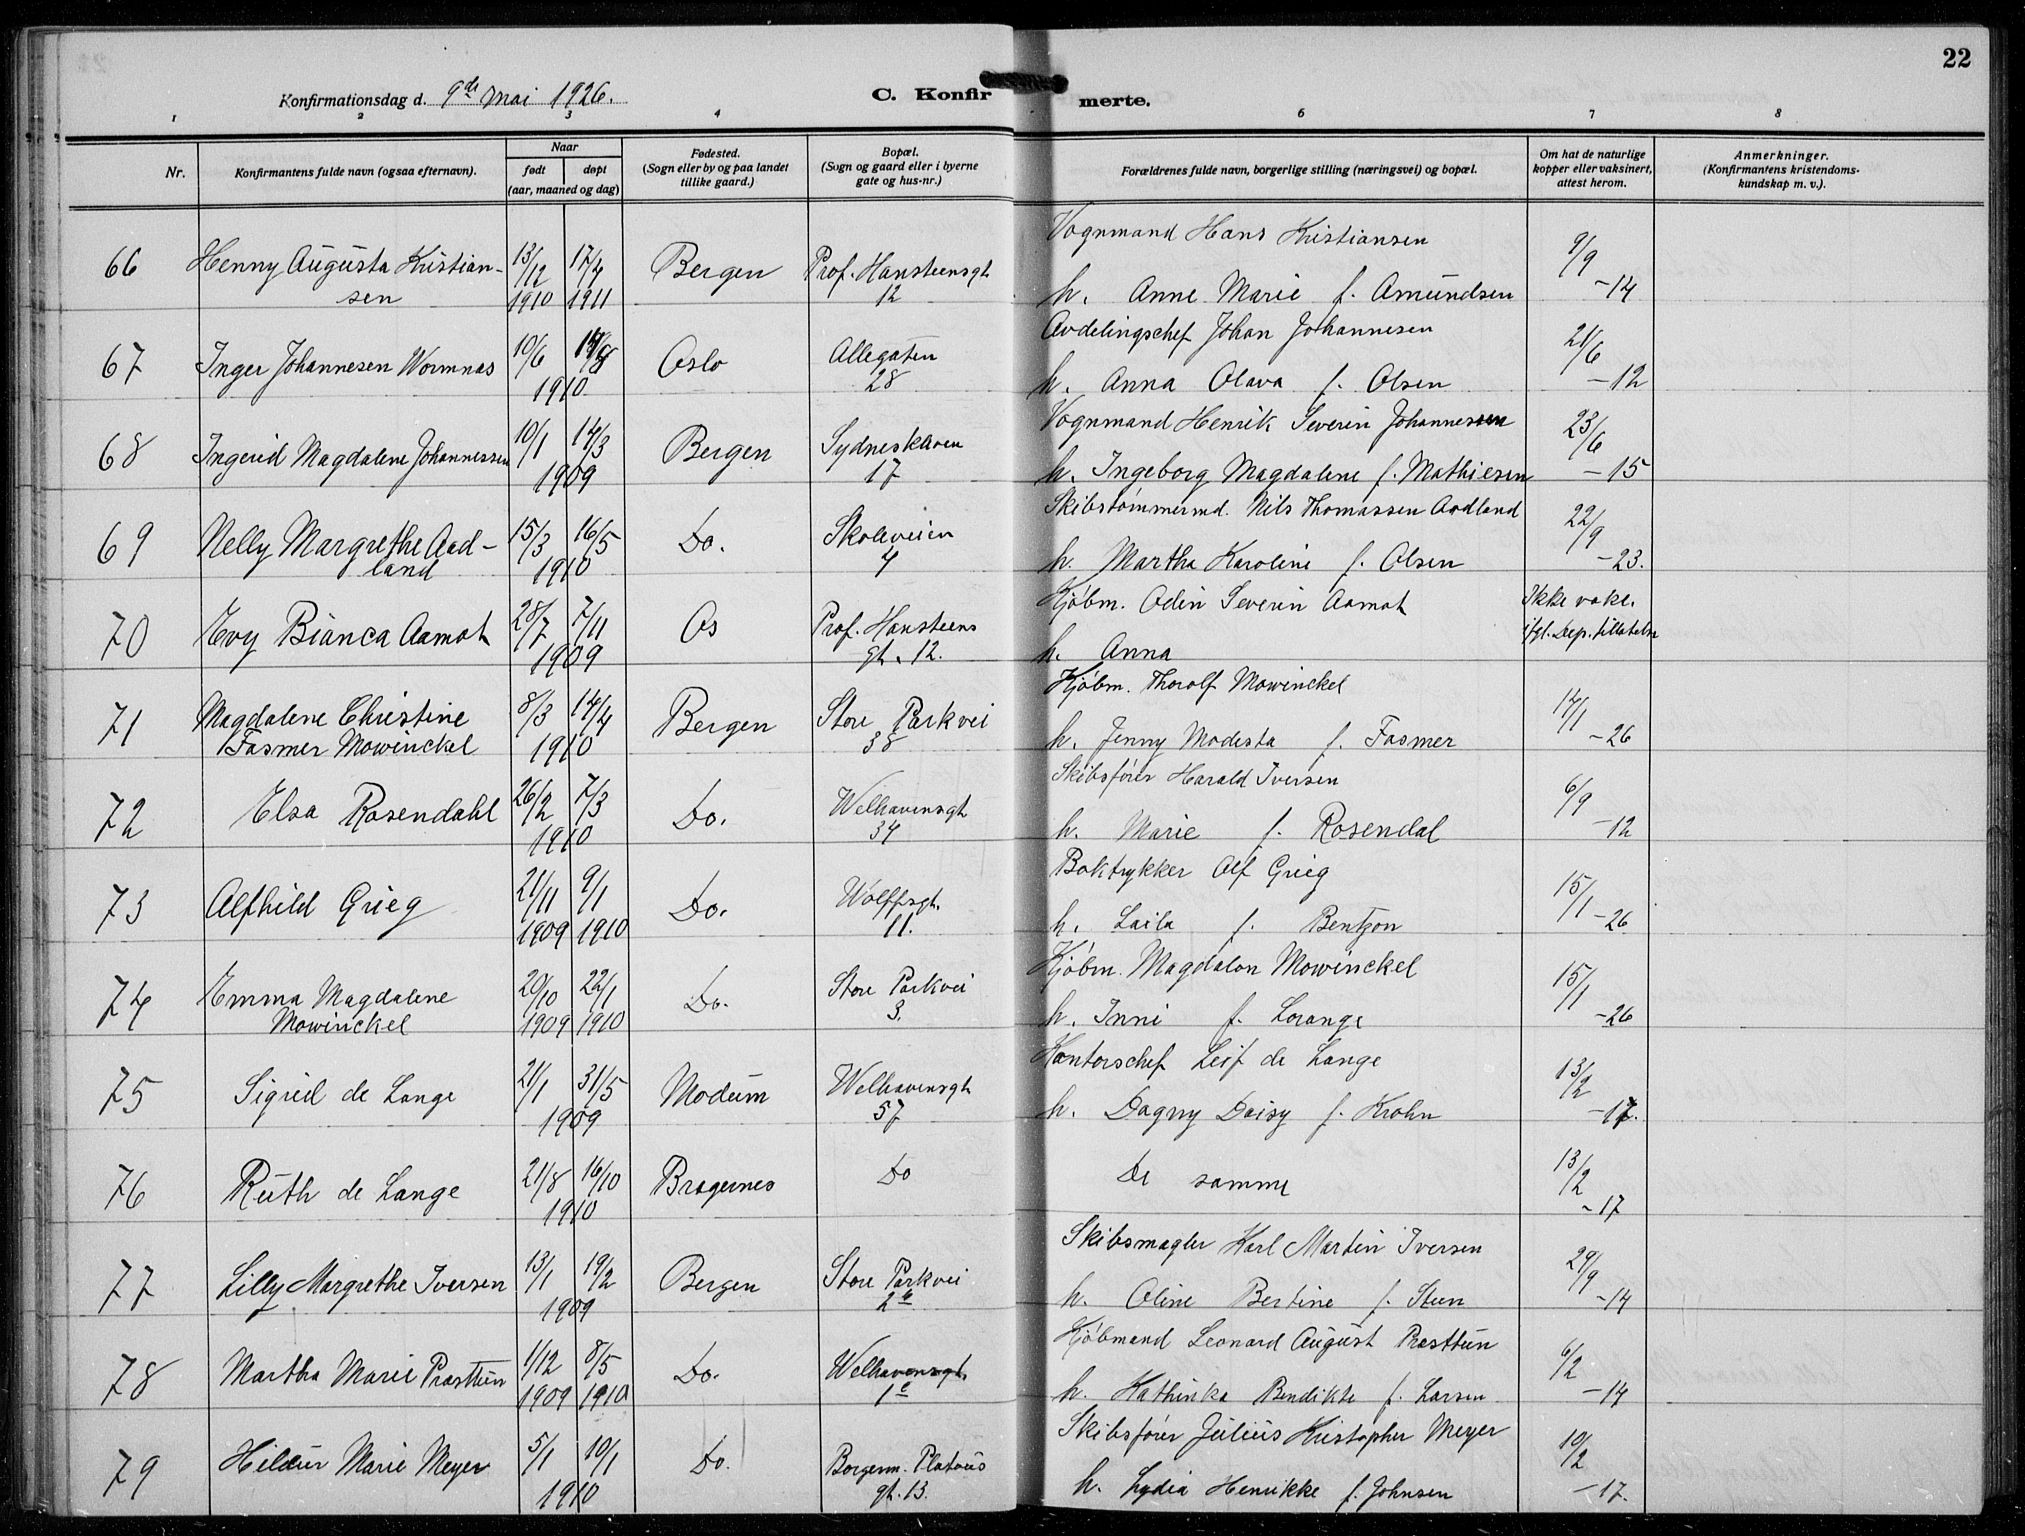 22
Konfirmationsdag d. 9de mai 1926.
C. Konfirmerte.
1 2 3 4 6 7 8
Nr.
Konfirmantens fulde navn (ogsaa efternavn).
Naar
født døpt
(aar, maaned og dag)
Fødested.
(Sogn eller by og paa landet
tillike gaard.)
Bopæl.
(Sogn og gaard eller i byerne
gate og hus-nr.)
Forældrenes fulde navn, borgerlige stilling (næringsvei) og bopæl.
Om hat de naturlige
kopper eller vaksinert,
attest herom.
Anmerkninger.
(Konfirmantens kristendoms-
kundskap m. v.).
Vognmand Hans Kristiansen
66 Henny Augusta Kristian- 13/12 17/4 Bergen Prof. Hansteensgt 9/9
sen 1910 1911 12 h. Anne Marie f. Amundsen -14
Avdelingschef Johan Johannesen
67 Inger Johannesen Wormnæs 10/6 Oslo Allegaten 21/6
1910 28 h. Anna Olava f. Olsen -12
Vognmand Henrik Severin Johannesen
68 Ingerid Magdalene Johannessen 10/1 14/3 Bergen Sydneskleven 23/6
1909 17 h. Ingeborg Magdalene f. Mathiesen -15
Skibstømmermd. Nils Thomassen Aadland
69 Nelly Margrethe Aad- 15/3 16/5 Do. Skoleveien 22/9
land 1910 4 h. Martha Karoline f. Olsen -23.
Kjøbm. Odin Severin Aamot Ikke vakc.
70 Evy Bianca Aamot 28/7 7/11 Os Prof. Hansteens ifgl. Dep. tillatelse
1909 gt. 12. h. Anna
Kjøbm. Thorolf Mowinckel
71 Magdalene Christine 8/3 14/4 Bergen Store Parkvei 14/1
Fasmer Mowinckel 1910 38 h. Jenny Modesta f. Fasmer -26
Skibsfører Harald Iversen
72 Elsa Rosendahl 26/2 7/3 Do. Welhavensgt 6/9
1910 34 h. Marie f. Rosendal -12
Boktrykker Alf Grieg
73 Alfhild Grieg 21/11 9/1 Do. Wolffsgt. 15/1
1909 1910 11. h. Laila f. Bentzon -26
Kjøbm. Magdalon Mowinckel
74 Emma Magdalene 20/10 22/1 Do. Store Parkvei 15/1
Mowinckel 1909 1910 3. h. Inni f. Lorange -26
Kontorschef Leif de Lange
75 Sigrid de Lange 21/1 31/5 Modum Welhavensgt 13/2
1909 57 h. Dagny Daisy f. Krohn -17.
76 Ruth de Lange 21/8 16/10 Bragernes Do De samme 13/2
1910 -17
Skibsmægler Karl Martin Iversen
77 Lilly Margrethe Iversen 13/1 19/2 Bergen Store Parkvei 29/9
1909 2b h. Oline Bertine f. Steen -14
Kjøbmand Leonard August Præsttun
78 Martha Marie Præsttun 1/12 8/5 Do. Welhavensgt. 6/2
1909 1910 1c h. Kathinka Bendikte f. Larsen -14
Skibsfører Julius Kristopher Meyer
79 Hildur Marie Meyer 5/1 10/1 Do. Borgerm. Platous 10/2
1910 gt. 13. h. Lydia Henrikke f. Johnsen -17.